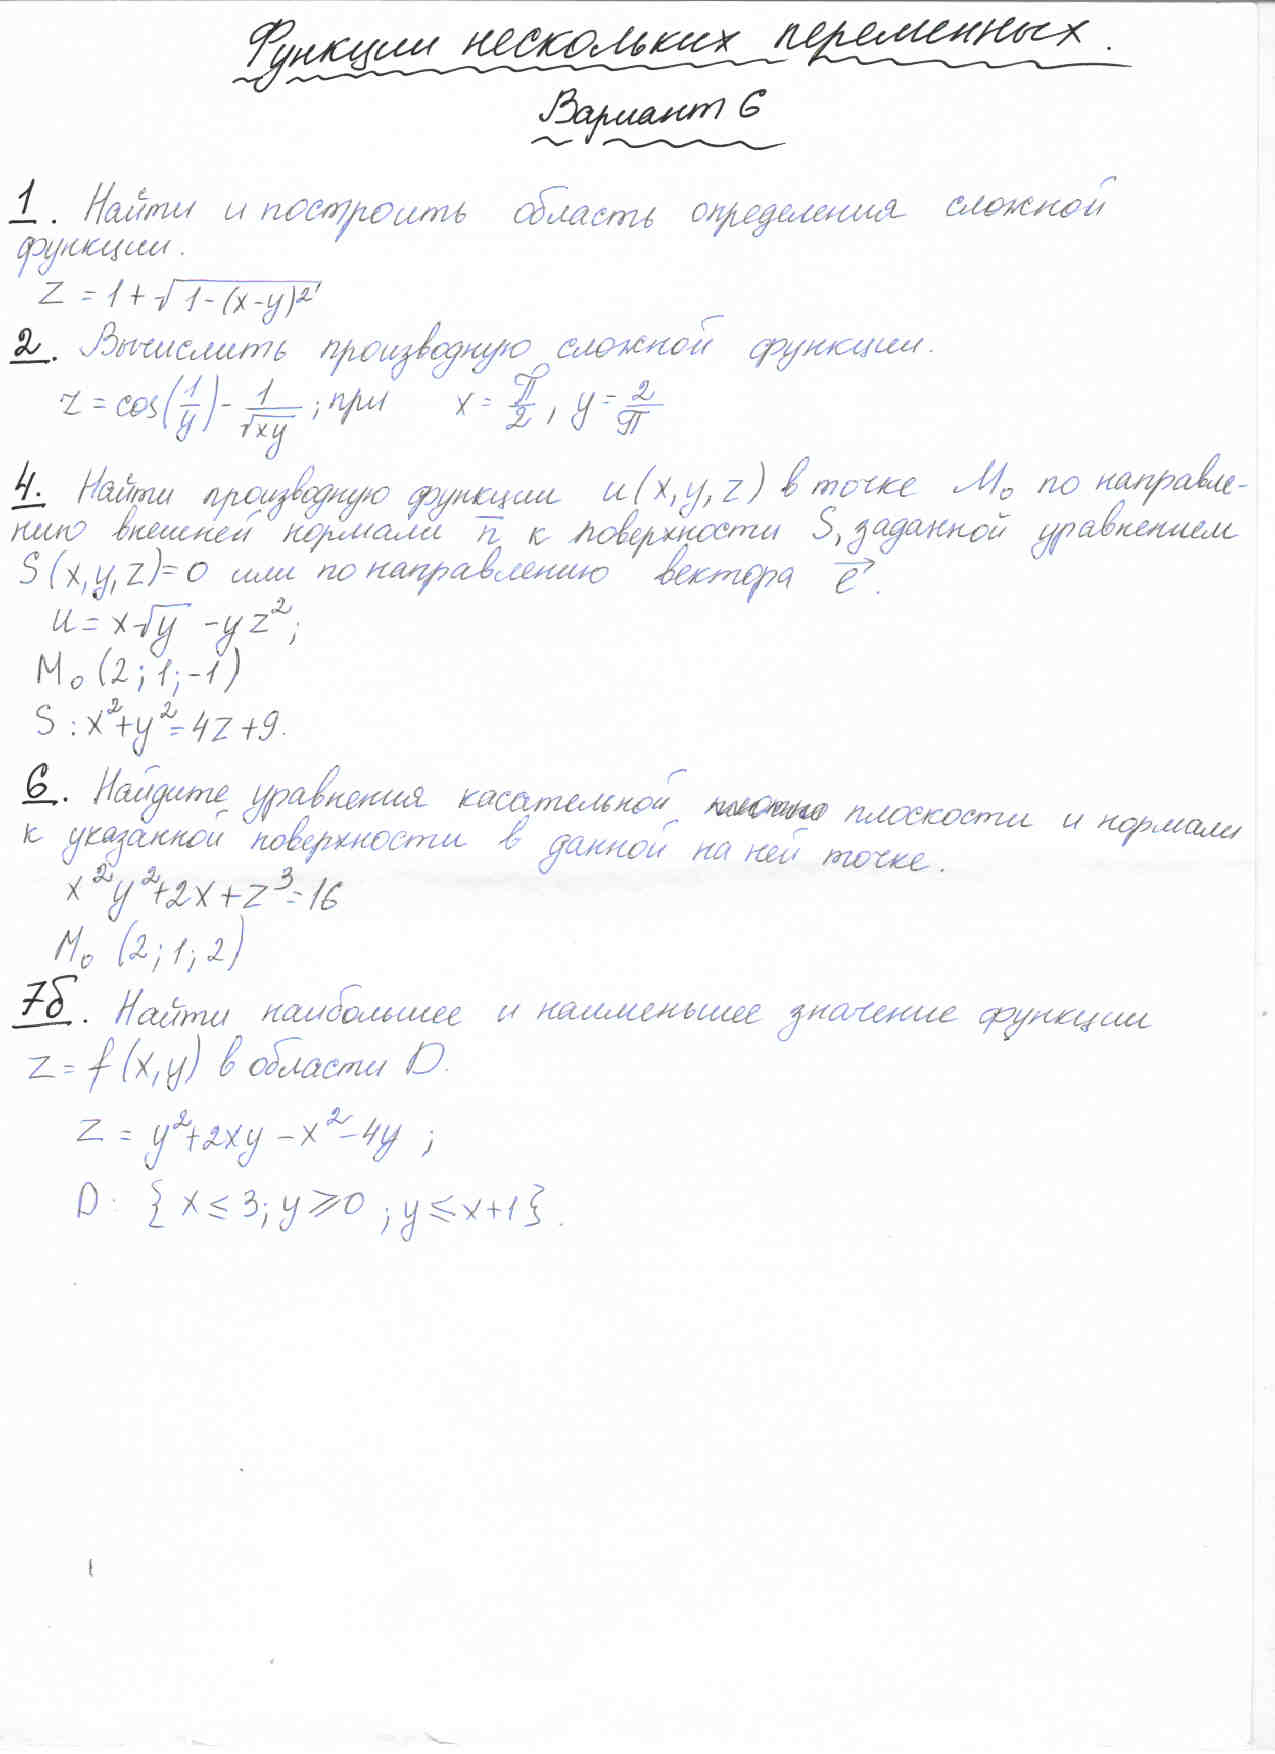 Функции нескольких переменных.
Вариант 6
1. Найти и построить область определения сложной
функции.
z = 1 + √(1-(x-y)²)
2. Вычислить производную сложной функции.
z = cos(1/y) - 1/√xy ; при x = π/2, y = 2/π
4. Найти производную функции u(x,y,z) в точке M₀ по направле-
нию внешней нормали n̅ к поверхности S, заданной уравнением
S(x,y,z)=0 или по направлению вектора e⃗.
u = x√y - yz²;
M₀ (2; 1; -1)
S: x²+y² = 4z+9.
6. Найдите уравнения касательной плоскости и нормали
к указанной поверхности в данной на ней точке.
x²y²+2x+z³=16
M₀ (2; 1; 2)
7б. Найти наибольшее и наименьшее значение функции
z = f(x,y) в области D.
z = y²+2xy-x²-4y ;
D: {x ≤ 3; y ≥ 0 ; y ≤ x+1}.